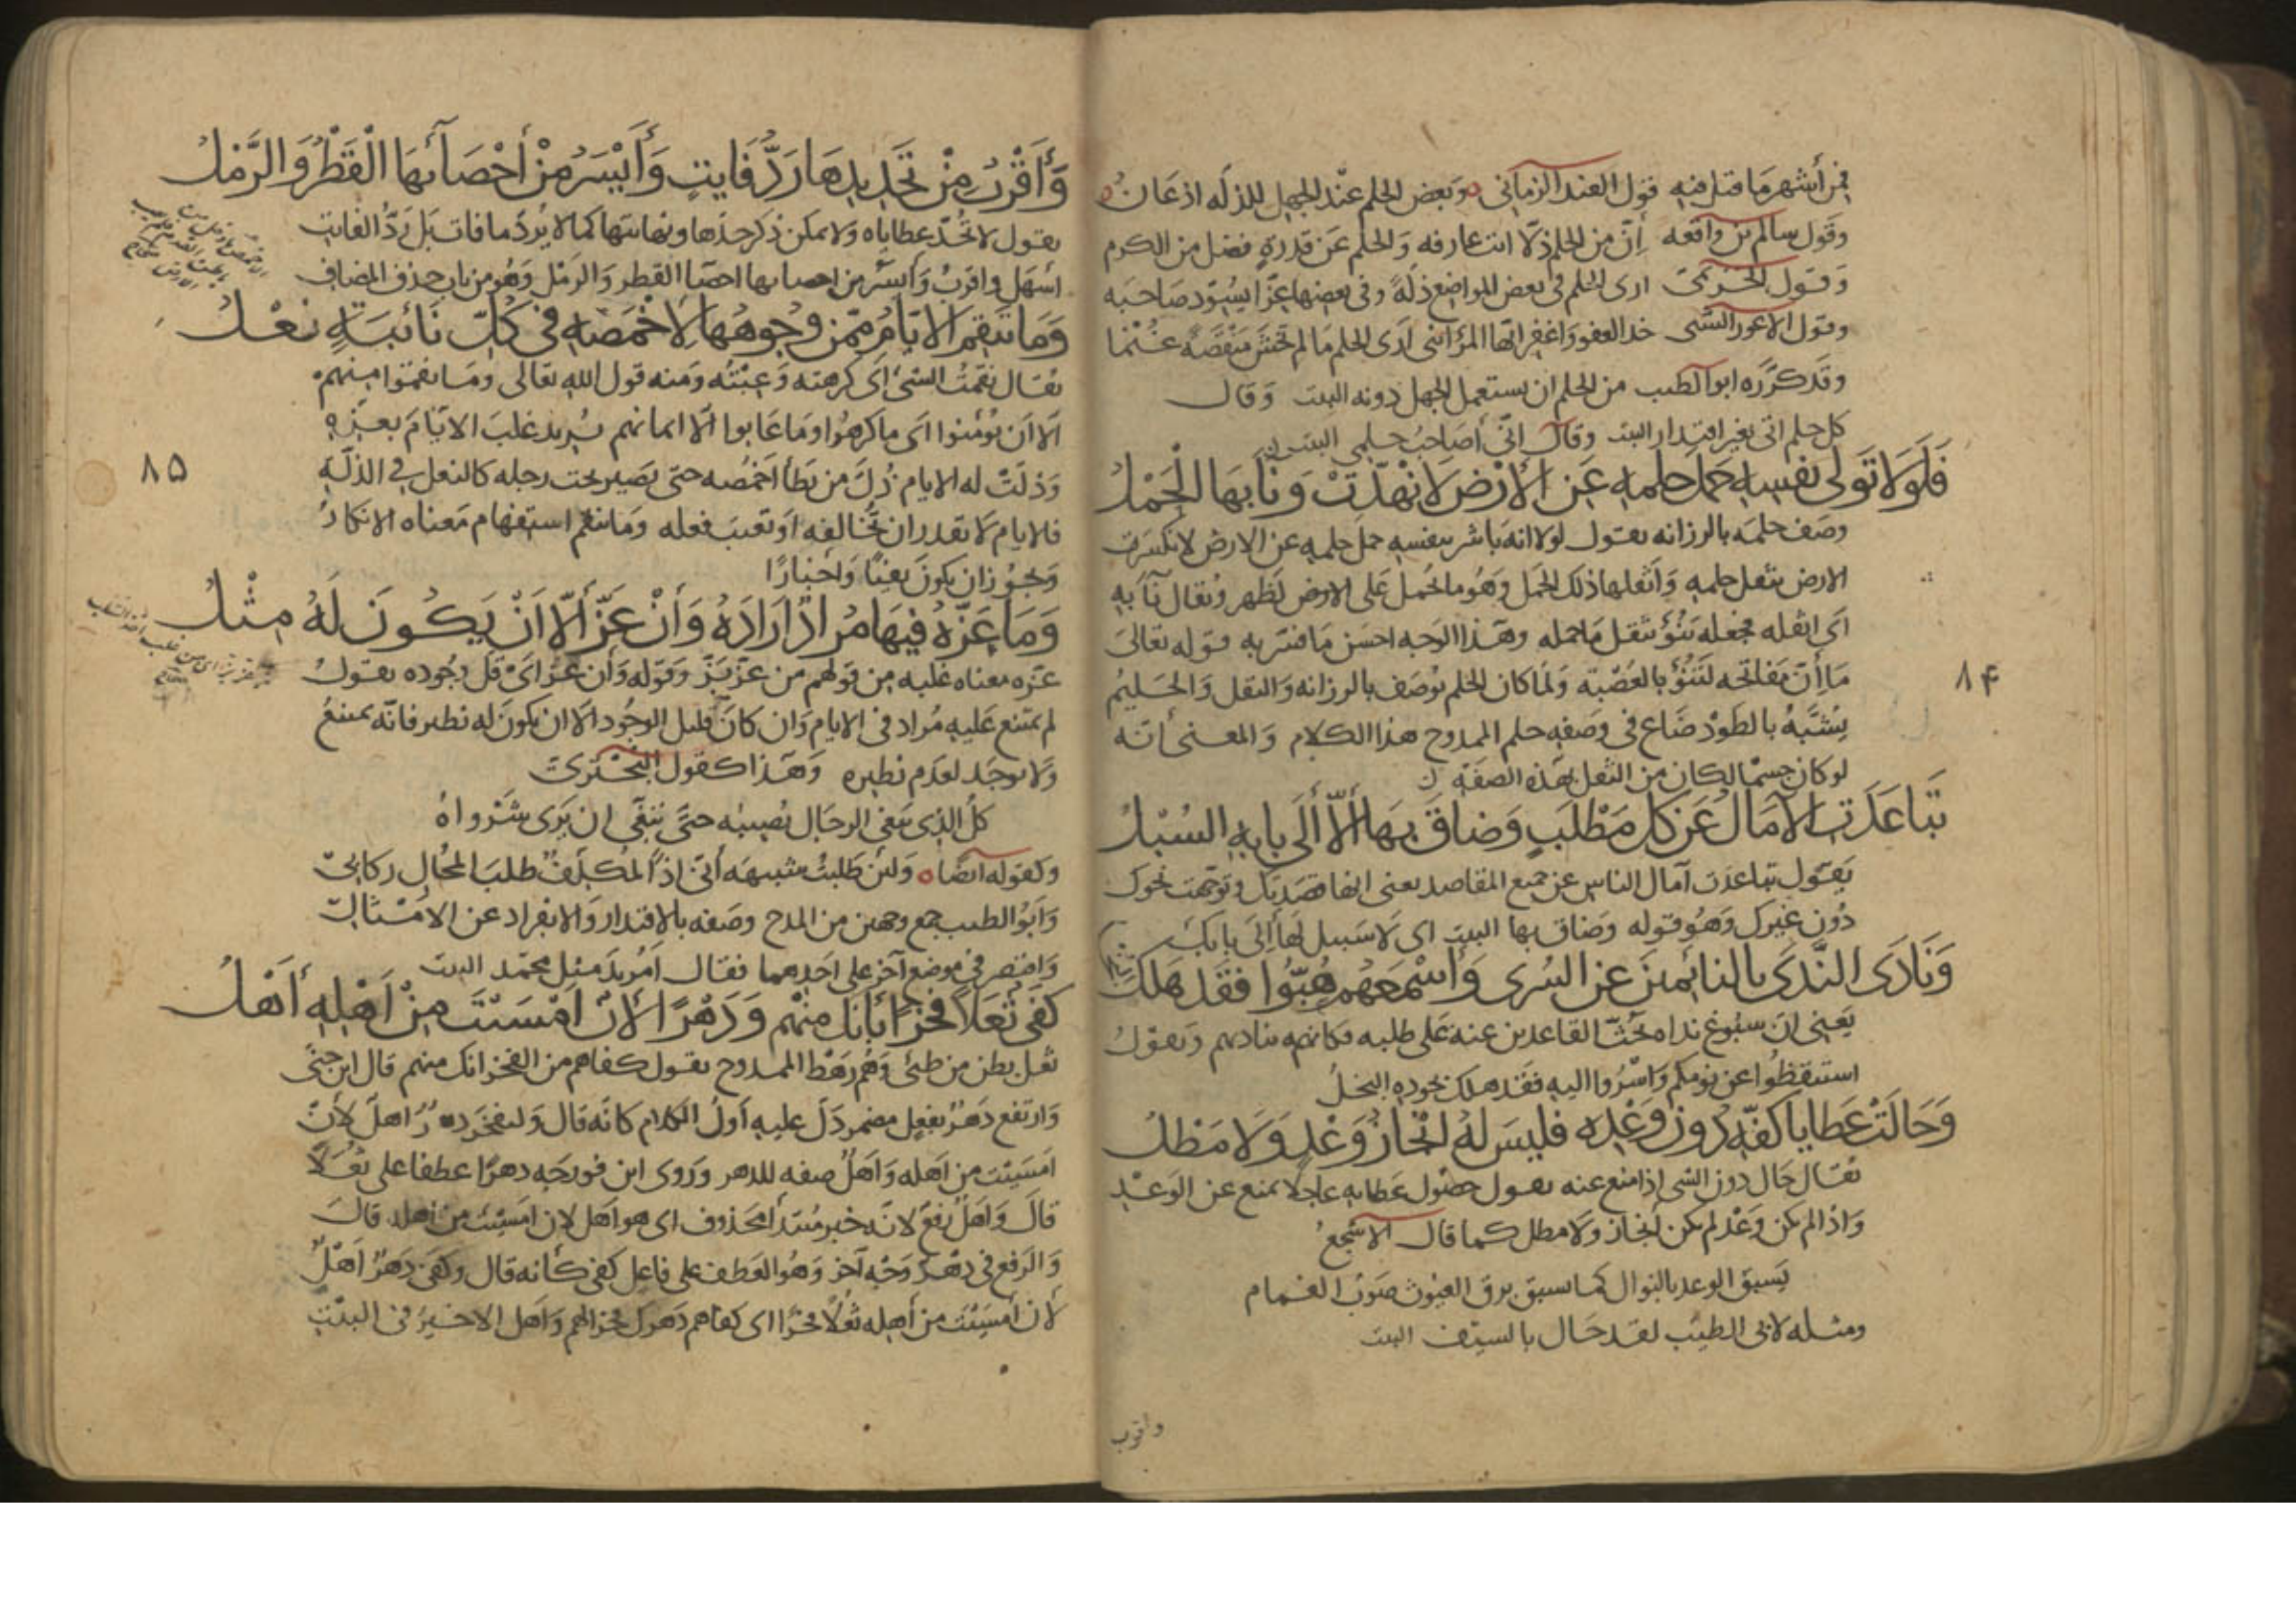 فمن أشهر ما قيل فيه قول الفند الزماني وبعض الحلم عند الجهل للذلة اذعان
وقول سالم بن وابصة إن من الحلم ذلا انت عارفه والحلم عن قدرة فضل من الكرم
وقول الخريمي ارى الحلم في بعض المواضع ذلة وفي بعضها عزا يسود صاحبه
وقول الاعور الشني خذ العفو واغفر ايها المرء انني ارى الحلم ما لم تخش منقصة غنما
وقد كرره ابو الطيب من الحلم ان يستعمل الجهل دونه البيت وقال
كل حلم اتى بغير اقتدار البيت وقال اني أصاحب حلمي البيت
فلولا تولى نفسه حمل حلمه عن الأرض لانهدت وناء بها الحمل
وصف حلمه بالرزانة يقول لولا انه باشر بنفسه حمل حلمه عن الارض لانكسرت
الارض بثقل حلمه واثقلها ذلك الحمل وهو ما يحمل على الارض لظهر ويقال ناء به
اى اثقله فجعله ينوء بثقل ما حمله وهذا الوجه احسن ما فسر به قوله تعالى
ما أن مفاتحه لتنوء بالعصبة ولما كان الحلم يوصف بالرزانة والثقل والحليم
يشبه بالطود ضاع في وصفه حلم الممدوح هذا الكلام والمعنى أنه
لو كان جسما لكان من الثقل بهذه الصفة
تباعدت الآمال عن كل مطلب وضاق بها ألا ألى بابه السبل
يقول تباعدت آمال الناس عن جميع المقاصد يعنى انها قصدتك وتوجهت نحوك
دون غيرك وهو قوله وضاق بها البيت اى لا سبيل لها ألى بابك
ونادى الندى بالنائمين عن السرى وأسمعهم هبوا فقد هلك البخل
يعنى ان سبوغ نداه يحث القاعدين عنه على طلبه فكانه يناديهم ويقول
استيقظوا عن نومكم واسروا اليه فقد هلك بجوده البخل
وحالت عطايا كفه دون وعده فليس له انجاز وعد ولا مطل
يقال حال دون الشى اذا منع عنه يقول حصول عطايه عاجلا يمنع عن الوعد
واذا لم يكن وعد لم يكن انجاز ولا مطل كما قال الاشجع
يسبق الوعد بالنوال كما سبق برق الغيوث صوب الغمام
ومثله لابى الطيب لقد حال بالسيف البيت
واقرب
٨۴
وأقرب من تحديدها رد فايت وأيسر من أحصائها القطر والرمل
يقول لا تحد عطاياه ولا يمكن ذكر حدها ونهايتها كما لا يرد ما فات بل رد الفايت
اسهل واقرب وأيسر من احصائها احصا القطر والرمل وهو من باب حذف المضاف
وما تنقم الايام ممن وجوهها لاخمصه في كل نائبة نعل
يقال نقمت الشئ اى كرهته وعبته ومنه قول الله تعالى وما نقموا منهم
الا أن يؤمنوا اى ما كرهوا وما عابوا الا ايمانهم يريد غلب الايام بعزه
وذلت له الايام ذل من يطأ اخمصه حتى تصير تحت رجله كالنعل في الذلة
فالايام لا تقدر ان تخالفه او تعيب فعله وما تنقم استفهام معناه الانكار
ويجوز ان يكون نفيا واخبارا
٨۵
وما عزه فيها مراد اراده وأن عز ألا ان يكون له مثل
عزه معناه غلبه من قولهم من عز بز وقوله وأن عز اى قل وجوده يقول
لم يمتنع عليه مراد في الايام وان كان قليل الوجود الا ان يكون له نظير فانه يمتنع
ولا يوجد لعدم نظيره وهذا كقول البحترى
كل الذى تبغى الرجال تصيبه حتى تبغى ان يرى شرواه
وكقوله ايضا ولئن طلبت شبيهه أنى اذا لمكلف طلب المحال ركابى
وابو الطيب جمع وجهين من المدح وصفه بالاقتدار والانفراد عن الامثال
واقتصر في موضع آخر على احدهما فقال أمريد مثل محمد البيت
كفى ثعلا فخرا بأنك منهم ودهر الأن امسيت من اهله أهل
ثعل بطن من طئ وهم رهط الممدوح يقول كفاهم من الفخر انك منهم قال ابن جنى
وارتفع دهر بفعل مضمر دل عليه أول الكلام كانه قال وليفخر دهر اهل لأن
امسيت من اهله واهل صفه للدهر وروى ابن فورجه دهرا عطفا على ثعلا
قال واهل رفع لانه خبر مبتدأ محذوف اى هو اهل لان امسيت من اهله قال
والرفع فى دهر وجه آخر وهو العطف على فاعل كفى كأنه قال وكفى دهر اهل
لأن أمسيت من أهله ثعلا فخرا اى كفاهم دهرك فخرا لهم واهل الاخير فى البيت